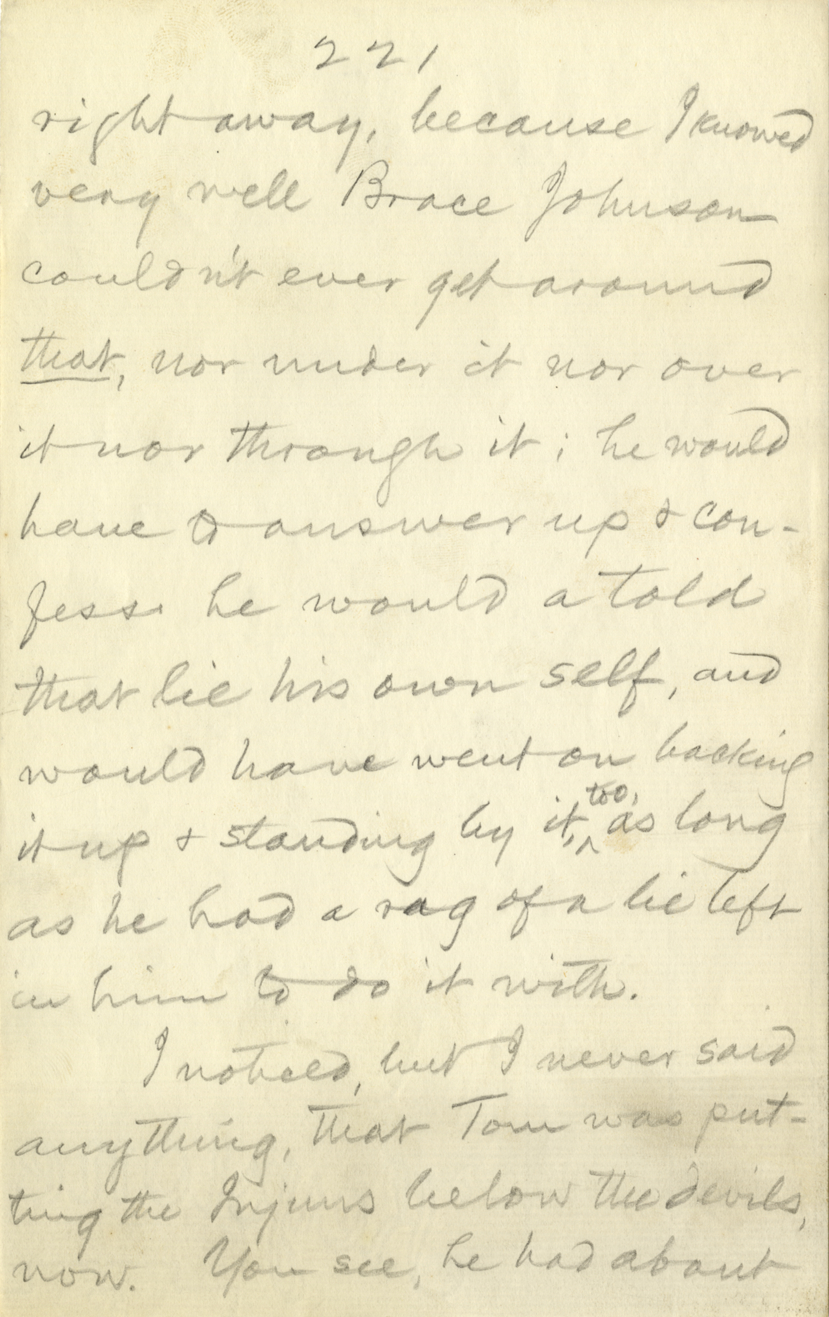 221
right away, because I knowed
very well Brace Johnson
couldn't ever get around
that, nor under it nor over
it nor through it; he would
have to answer up & con-
fess he would a told
that lie his own self, and
would have went on backing
it up & standing by it, too, as long
as he had a rag of a lie left
in him to do it with.
I noticed, but I never said
anything, that Tom was put-
ting the Injuns below the devils,
now. You see, he had about